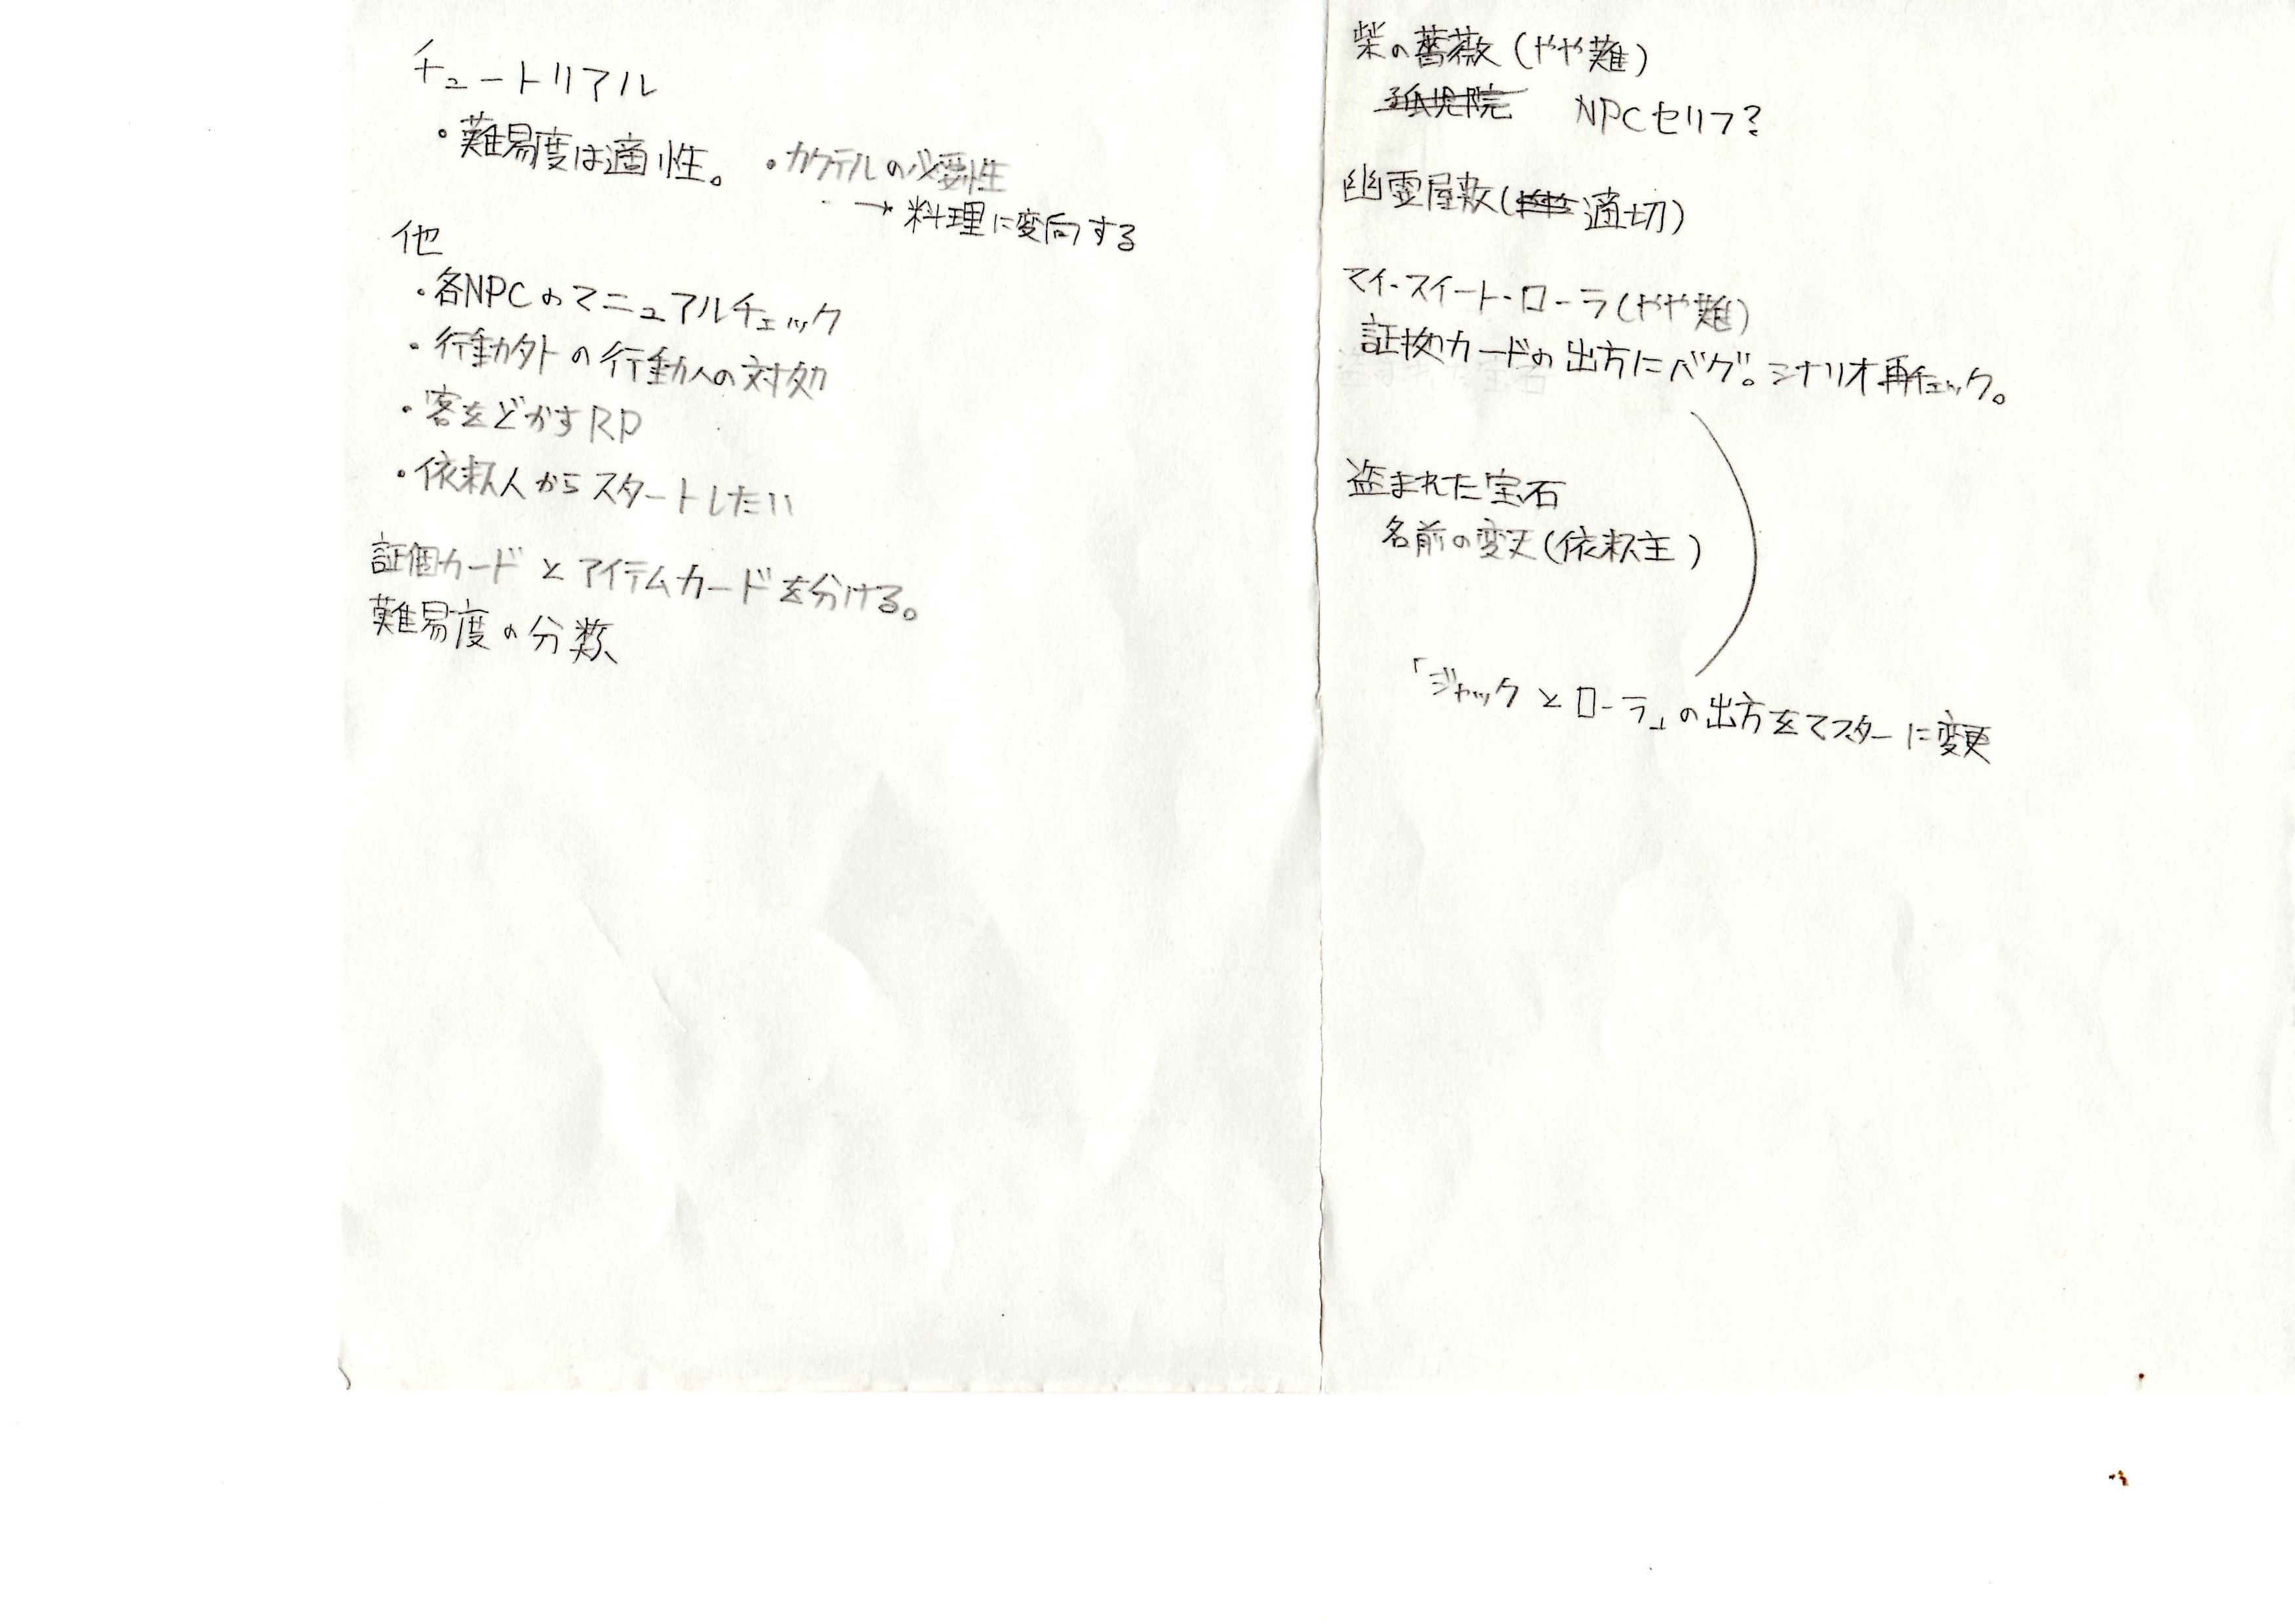 チュートリアル
・難易度は適性。 ・カクテルの必要性
→ 料理に変向する
他
・各NPCのマニュアルチェック
・行動外の行動への対処
・客をどかすRP
・依頼人からスタートしたい
証個カードとアイテムカードを分ける。
難易度の分類
柴の薔薇(やや難)
孤児院 NPCセリフ?
幽霊屋敷(適切)
マイ・スイート・ローラ(やや難)
証拠カードの出方にバグ。シナリオ再チェック。
盗まれた宝石
名前の変更(依頼主)
「ジャックとローラ」の出方をマスターに変更